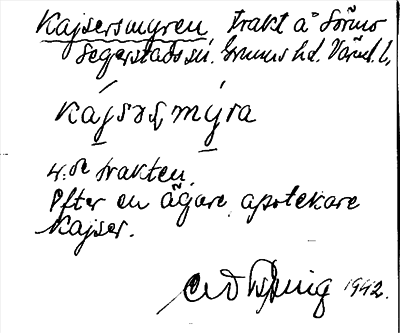 Kajsersmyren, trakt å Sörmo
Segerstads sn. Grums hd. Värml. l,
kájsəʂmýra
trakten
Efter en ägare, apotekare
Kajser.
1942.